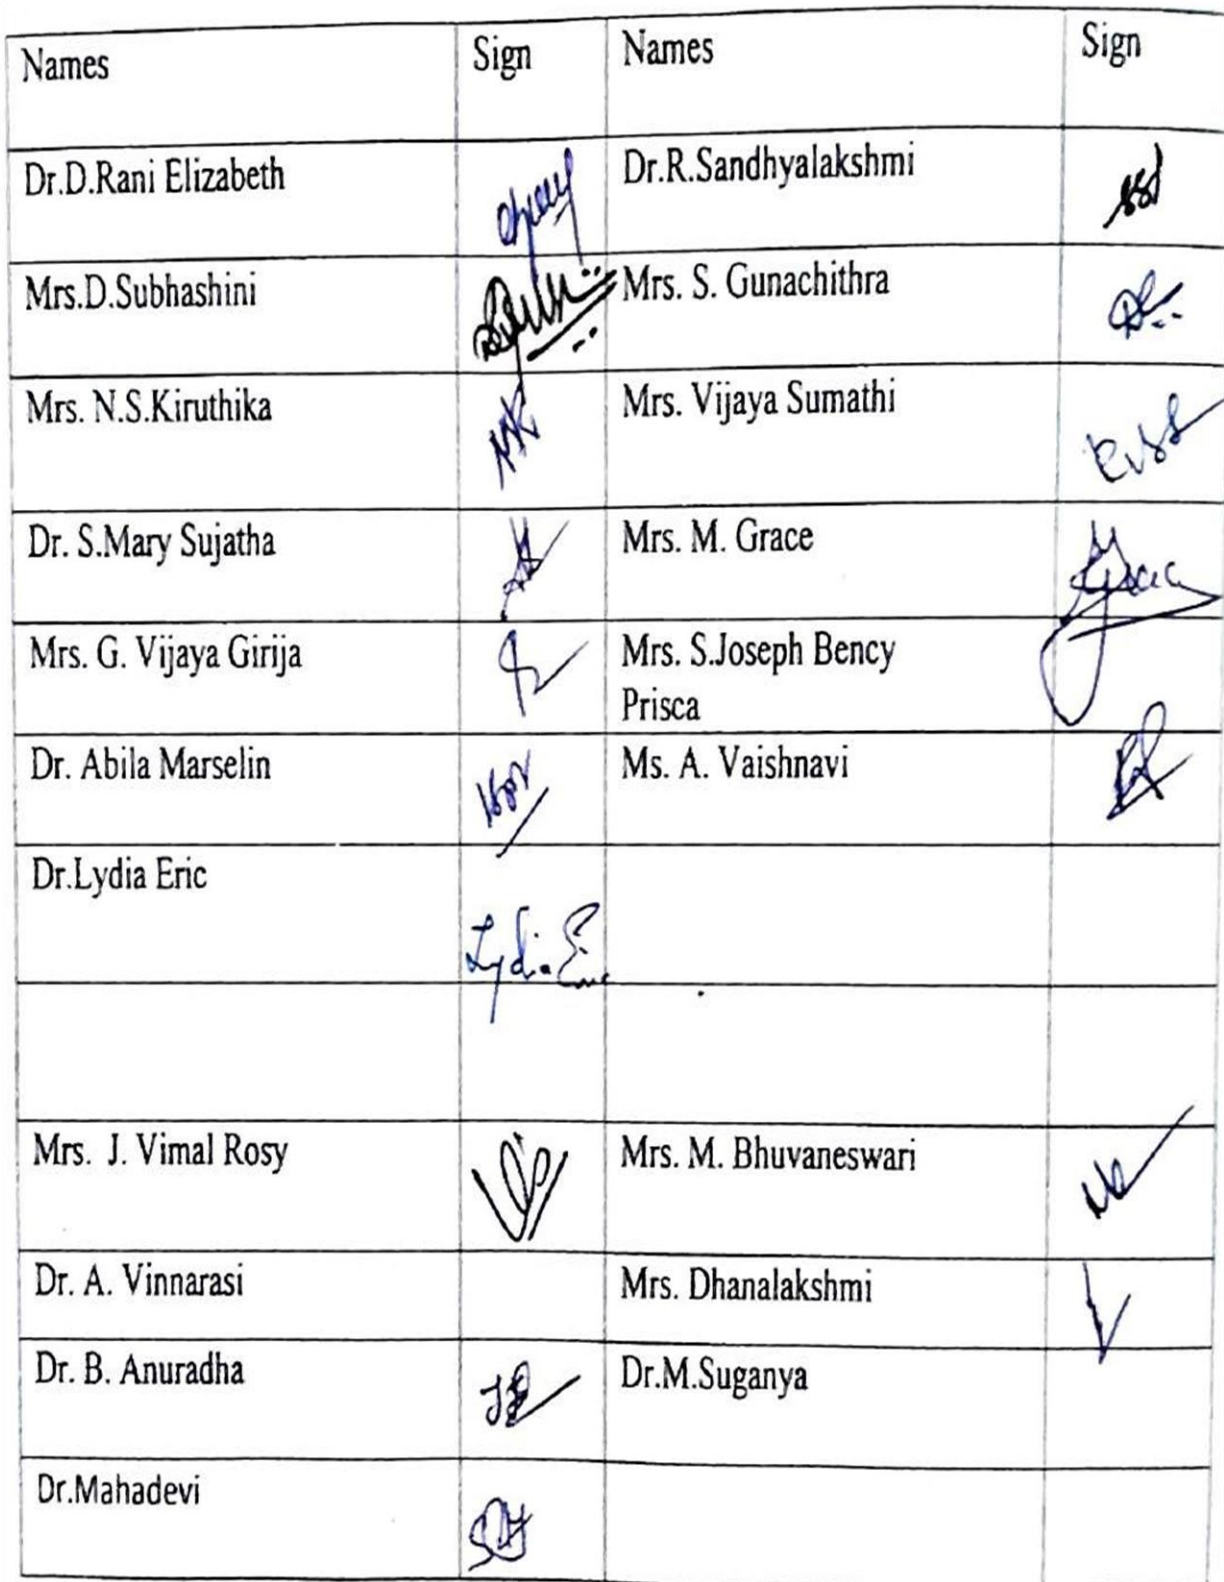 Names Sign Names Sign
Dr.D.Rani Elizabeth Dr.R.Sandhyalakshmi
Mrs.D.Subhashini Mrs. S. Gunachithra
Mrs. N.S.Kiruthika Mrs. Vijaya Sumathi
Dr. S.Mary Sujatha Mrs. M. Grace
Mrs. G. Vijaya Girija Mrs. S.Joseph Bency
Prisca
Dr. Abila Marselin Ms. A. Vaishnavi
Dr.Lydia Eric
Lydia Eric
Mrs. J. Vimal Rosy Mrs. M. Bhuvaneswari
Dr. A. Vinnarasi Mrs. Dhanalakshmi
Dr. B. Anuradha Dr.M.Suganya
Dr.Mahadevi